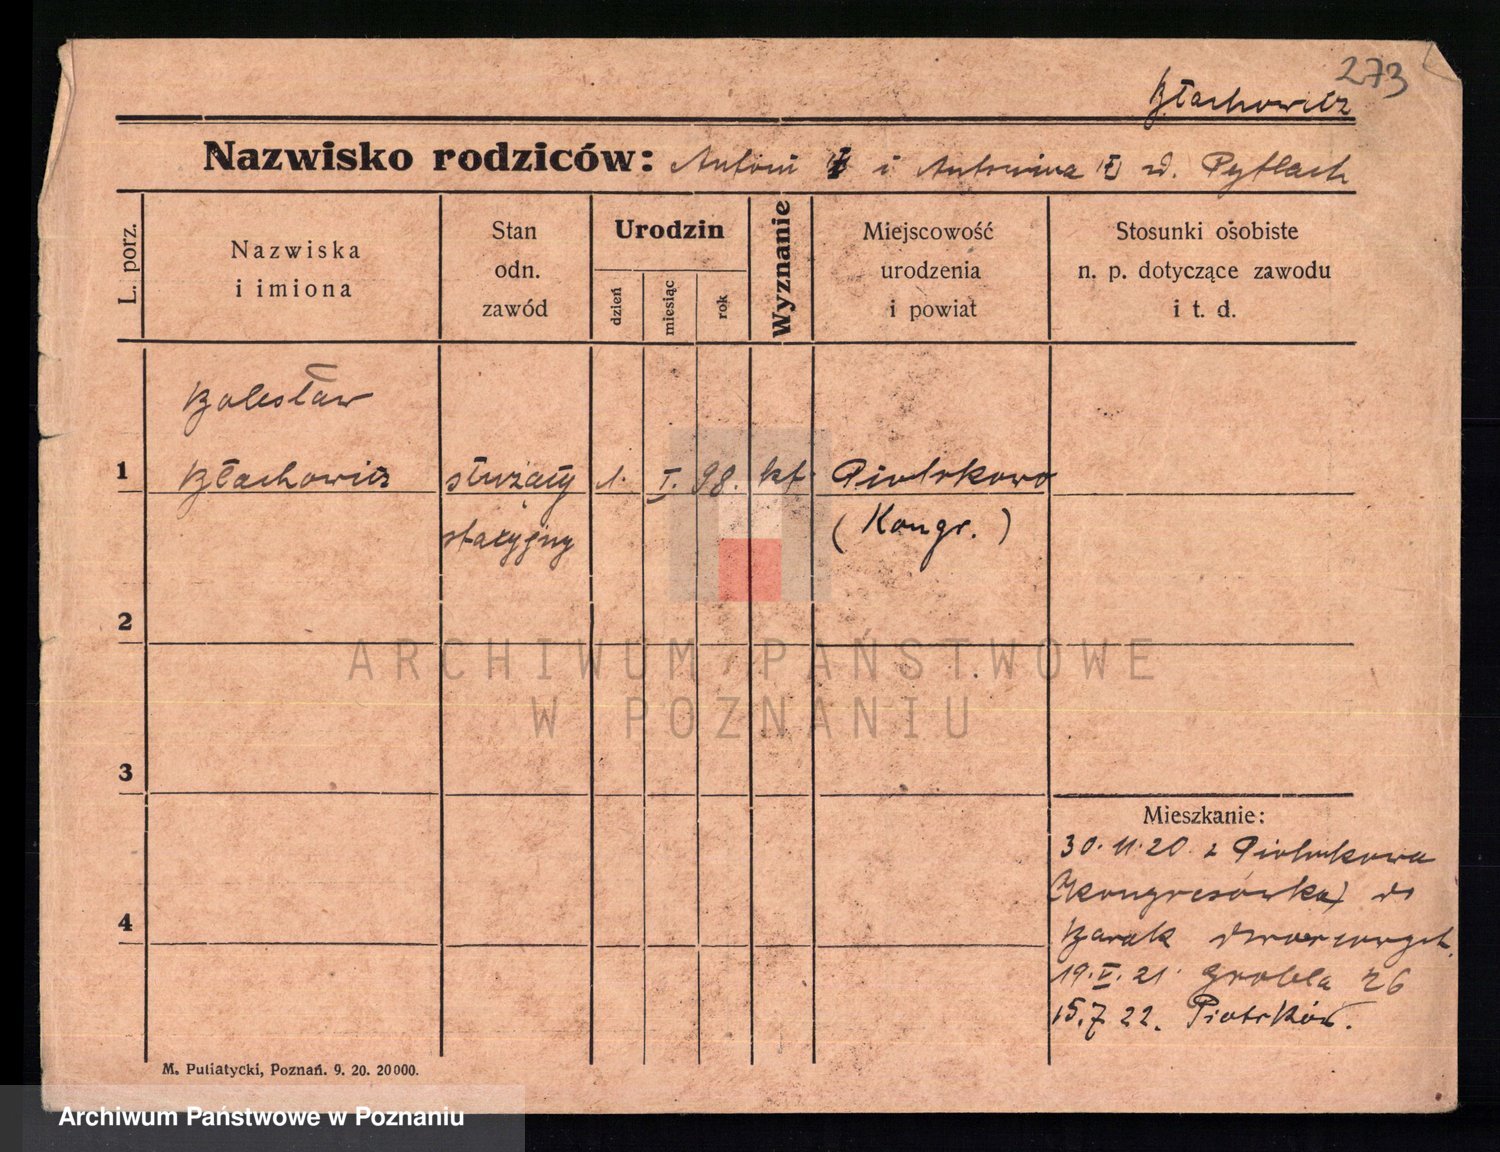 273
Błachowicz
Nazwisko rodziców: Antoni i Antonina z d. Pytlach
L. porz.
Nazwiska
i imiona
Stan
odn.
zawód
Urodzin
dzień
miesiąc
rok
Wyznanie
Miejscowość
urodzenia
i powiat
Stosunki osobiste
n. p. dotyczące zawodu
i t. d.
Bolesław
1 Błachowicz służały 1. I. 98. kt. Piotrkowo
stacyjny (Kongr.)
2
3
4
Mieszkanie:
30.11.20 z Piotrkowa
(Kongresówka) do
Barak dworcowych.
19.V.21. Grobla 26
15.7.22. Piotrków.
M. Putiatycki, Poznań. 9. 20. 20 000.
ARCHIWUM PAŃSTWOWE
W POZNANIU
Archiwum Państwowe w Poznaniu